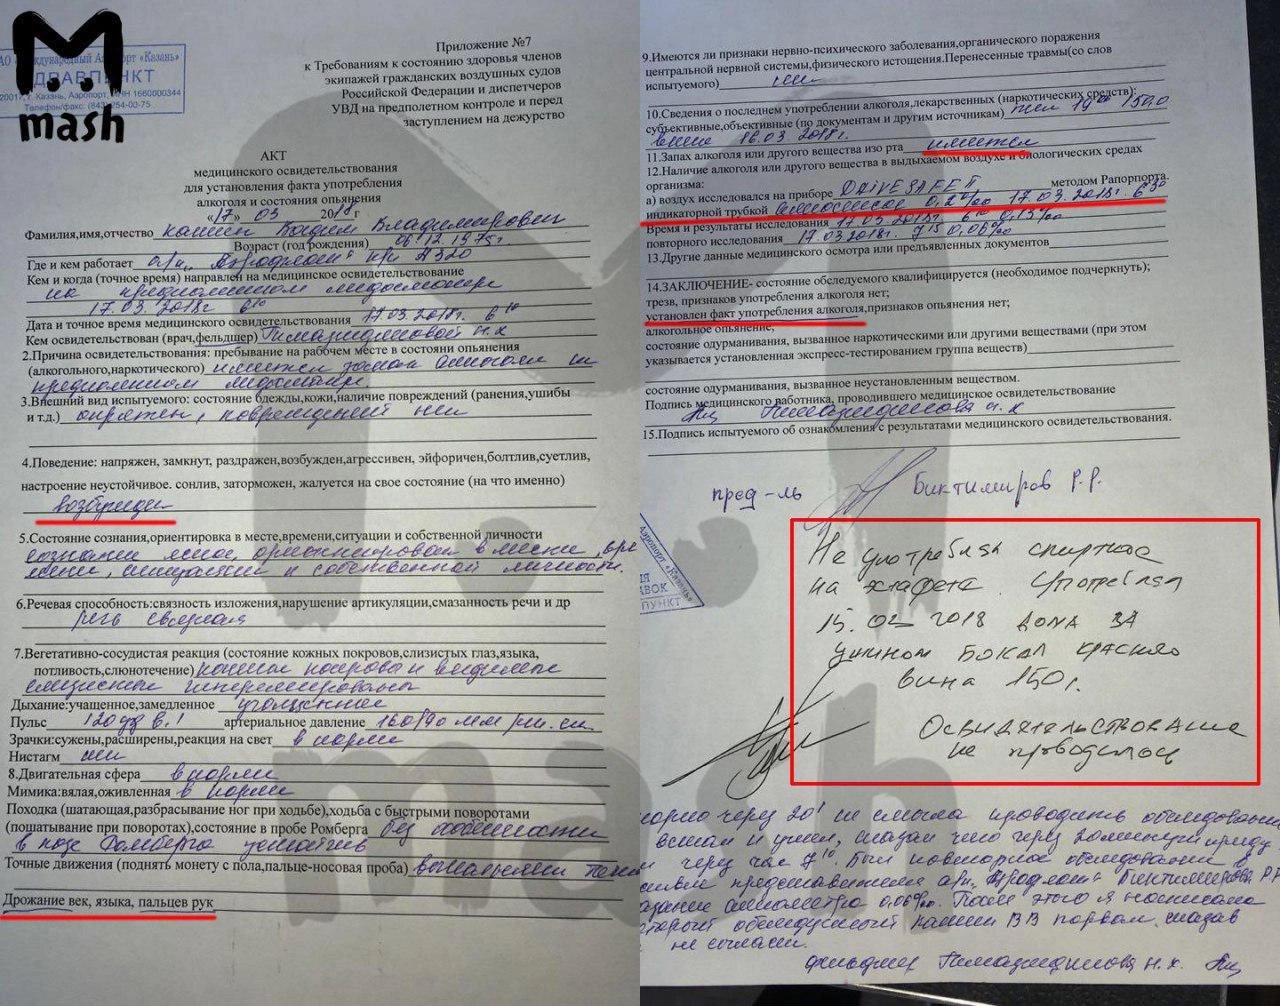 mash
АО «Международный Аэропорт «Казань»
ЗДРАВПУНКТ
420017, г. Казань, Аэропорт, ИНН 1660000344
Телефон/факс: (843) 254-00-75
Приложение №7
к Требованиям к состоянию здоровья членов
экипажей гражданских воздушных судов
Российской Федерации и диспетчеров
УВД на предполетном контроле и перед
заступлением на дежурство
АКТ
медицинского освидетельствования
для установления факта употребления
алкоголя и состояния опьянения
«17» 03 2018 г
Фамилия,имя,отчество Кашин Вадим Владимирович
Возраст (год рождения) 06.12.1975г.
Где и кем работает а/к „Аэрофлот" А320
Кем и когда (точное время) направлен на медицинское освидетельствование
на предполетном медосмотре
17.03.2018г 6 10
Дата и точное время медицинского освидетельствования 17.03.2018г. 6 10
Кем освидетельствован (врач,фельдшер) Гимазидиновой Н.Х
2.Причина освидетельствования: пребывание на рабочем месте в состоянии опьянения
(алкогольного,наркотического) имеется запах алкоголя на
предполетном медосмотре.
3.Внешний вид испытуемого: состояние одежды,кожи,наличие повреждений (ранения,ушибы
и т.д.) опрятен, повреждений нет
4.Поведение: напряжен, замкнут, раздражен,возбужден,агрессивен, эйфоричен,болтлив,суетлив,
настроение неустойчивое. сонлив, заторможен, жалуется на свое состояние (на что именно)
возбужден
5.Состояние сознания,ориентировка в месте,времени,ситуации и собственной личности
сознание ясное, ориентирован в месте, вре
мени, ситуации и собственной личности.
6.Речевая способность:связность изложения,нарушение артикуляции,смазанность речи и др
речь связная
7.Вегетативно-сосудистая реакция (состояние кожных покровов,слизистых глаз,языка,
потливость,слюнотечение) кожные покровы и видимые
слизистые гиперемированы
Дыхание:учащенное,замедленное учащенное
Пульс 120 уд в 1 артериальное давление 160/90 мм рт. ст.
Зрачки:сужены,расширены,реакция на свет в норме
Нистагм нет
8.Двигательная сфера в норме
Мимика:вялая,оживленная в норме
Походка (шатающая,разбрасывание ног при ходьбе),ходьба с быстрыми поворотами
(пошатывание при поворотах),состояние в пробе Ромберга без особенностей
в позе Ромберга устойчив
Точные движения (поднять монету с пола,пальце-носовая проба) выполняет
Дрожание век, языка, пальцев рук
9.Имеются ли признаки нервно-психического заболевания,органического поражения
центральной нервной системы,физического истощения.Перенесенные травмы(со слов
испытуемого) нет
10.Сведения о последнем употреблении алкоголя,лекарственных (наркотических средств):
субъективные,объективные (по документам и другим источникам) 19 00 150,0
вина 16.03 2018г.
11.Запах алкоголя или другого вещества изо рта имеется
12.Наличие алкоголя или другого вещества в выдыхаемом воздухе и биологических средах
организма:
а) воздух исследовался на приборе DRIVESAFE II методом Рапорпорта.
индикаторной трубкой 0,2‰ 17.03.2018г. 6 30
Время и результаты исследования 17.03 2018г. 0,15‰
повторного исследования 17.03 2018г. 7 15 0,06‰
13.Другие данные медицинского осмотра или предъявленных документов
14.ЗАКЛЮЧЕНИЕ- состояние обследуемого квалифицируется (необходимое подчеркнуть);
трезв, признаков употребления алкоголя нет;
установлен факт употребления алкоголя,признаков опьянения нет;
алкогольное опьянение;
состояние одурманивания, вызванное наркотическими или другими веществами (при этом
указывается установленная экспресс-тестированием группа веществ)
состояние одурманивания, вызванное неустановленным веществом.
Подпись медицинского работника, проводившего медицинское освидетельствование
Гимазидинова Н.Х
15.Подпись испытуемого об ознакомления с результатами медицинского освидетельствования.
пред-ль Биктимиров Р.Р.
Аэропорт «Казань»
Не употреблял спиртное
на эстафете. Употреблял
15.03 2018 дома за
ужином бокал красного
вина 150г.
Освидетельствование
не проводилось
через 20' не смогла проводить обследование
встал и ушел, сказал что через 20 минут приду
через час 7 10. Был повторное обследование в
представителя а/к. Аэрофлот Биктимирова Р.Р
0.06‰. После этого я написала
обследуемый Кашин В В порвал, сказав
не согласен.
фельдшер Гимазидинова Н.Х.